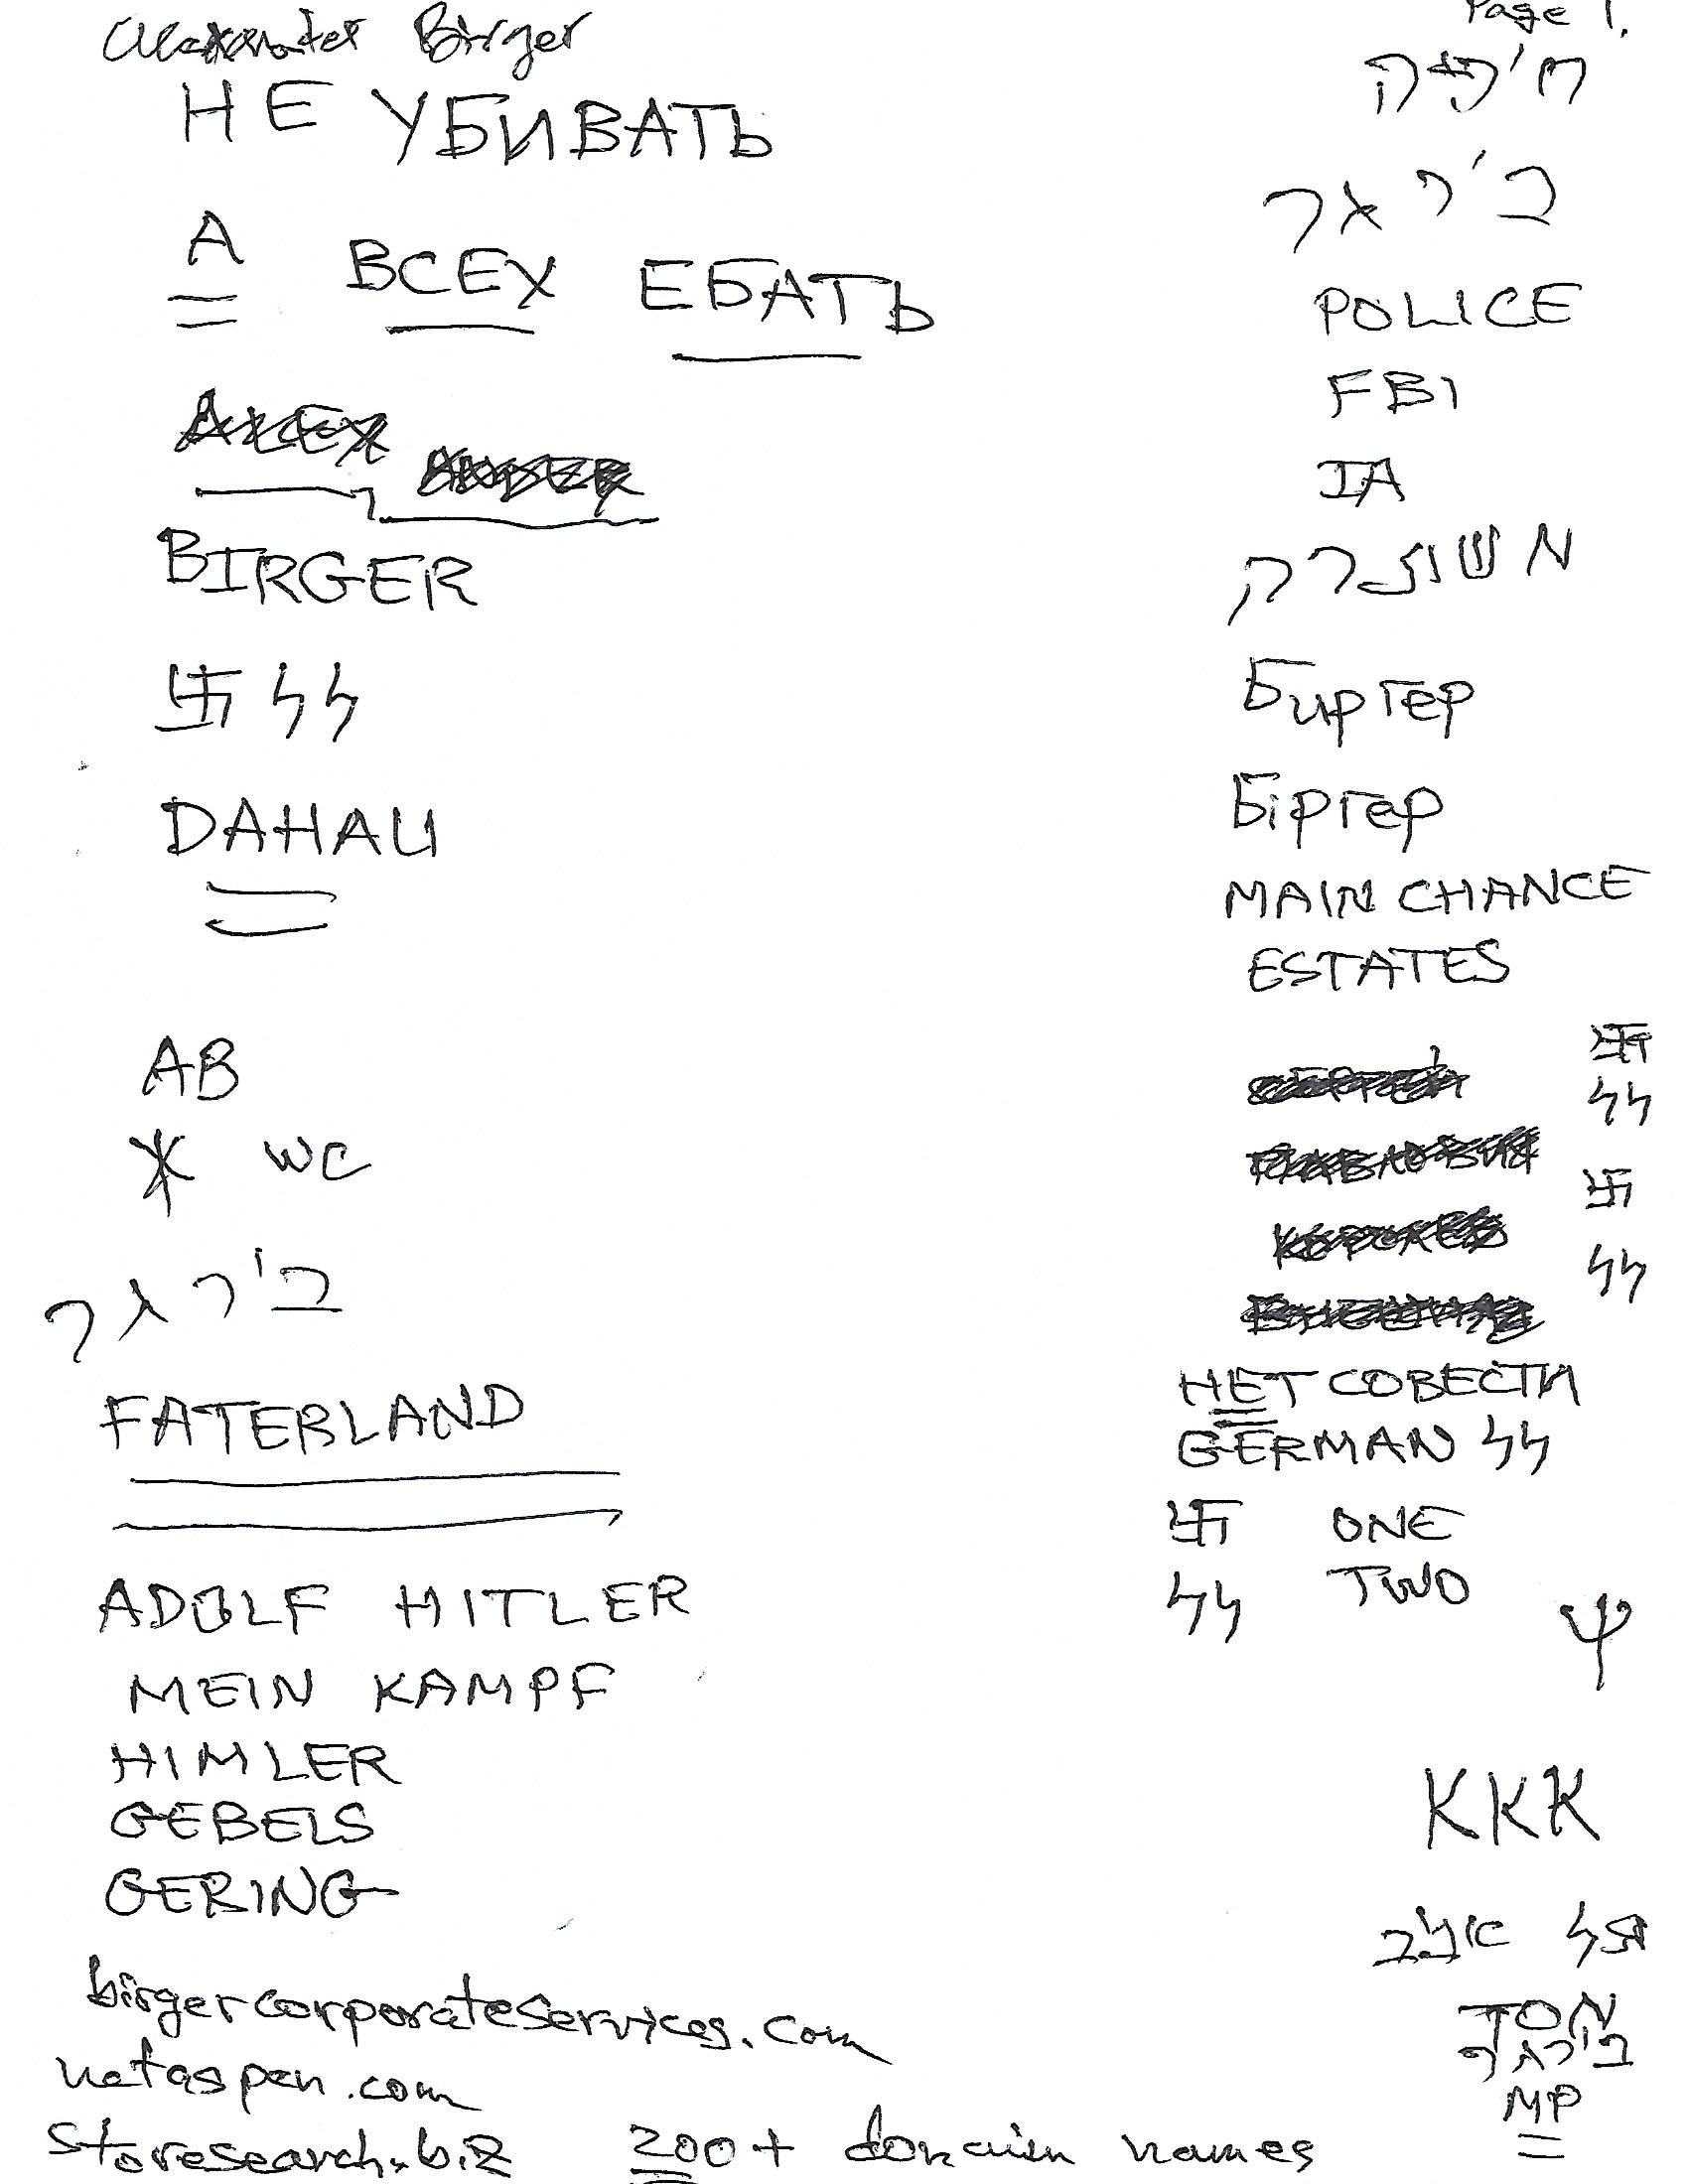 Alexander Birger
НЕ УБИВАТЬ
А ВСЕХ ЕБАТЬ
BIRGER
卐 ϟϟ
DAHAU
AB
WC
בירגר
FATERLAND
ADOLF HITLER
MEIN KAMPF
HIMLER
GEBELS
GERING
birgercorporateservices.com
netaspen.com
storesearch.biz 200+ domain names
Page 1.
בירגר
POLICE
FBI
IA
Биргер
Бiргер
MAIN CHANCE
ESTATES
卐
ϟϟ
卐
ϟϟ
НЕТ СОВЕСТИ
GERMAN ϟϟ
卐 ONE
ϟϟ TWO
Ψ
KKK
TON
בירגר
MP